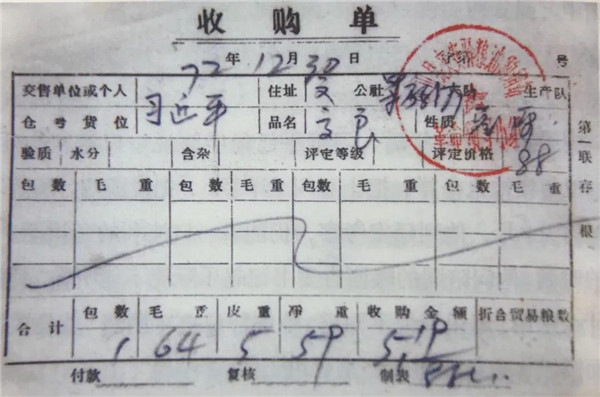 收购单
72年12月30日 号
交售单位或个人 习近平 住址 文 公社 大队 生产队
仓号货位 品名 性质
验质 水分 含杂 评定等级 评定价格 88
包数 毛重 包数 毛重 包数 毛重 包数 毛重
合计 包数 毛重 皮重 净重 收购金额 折合贸易粮数
1 64 5 59 5.19
付款 复核 制表
第一联存根